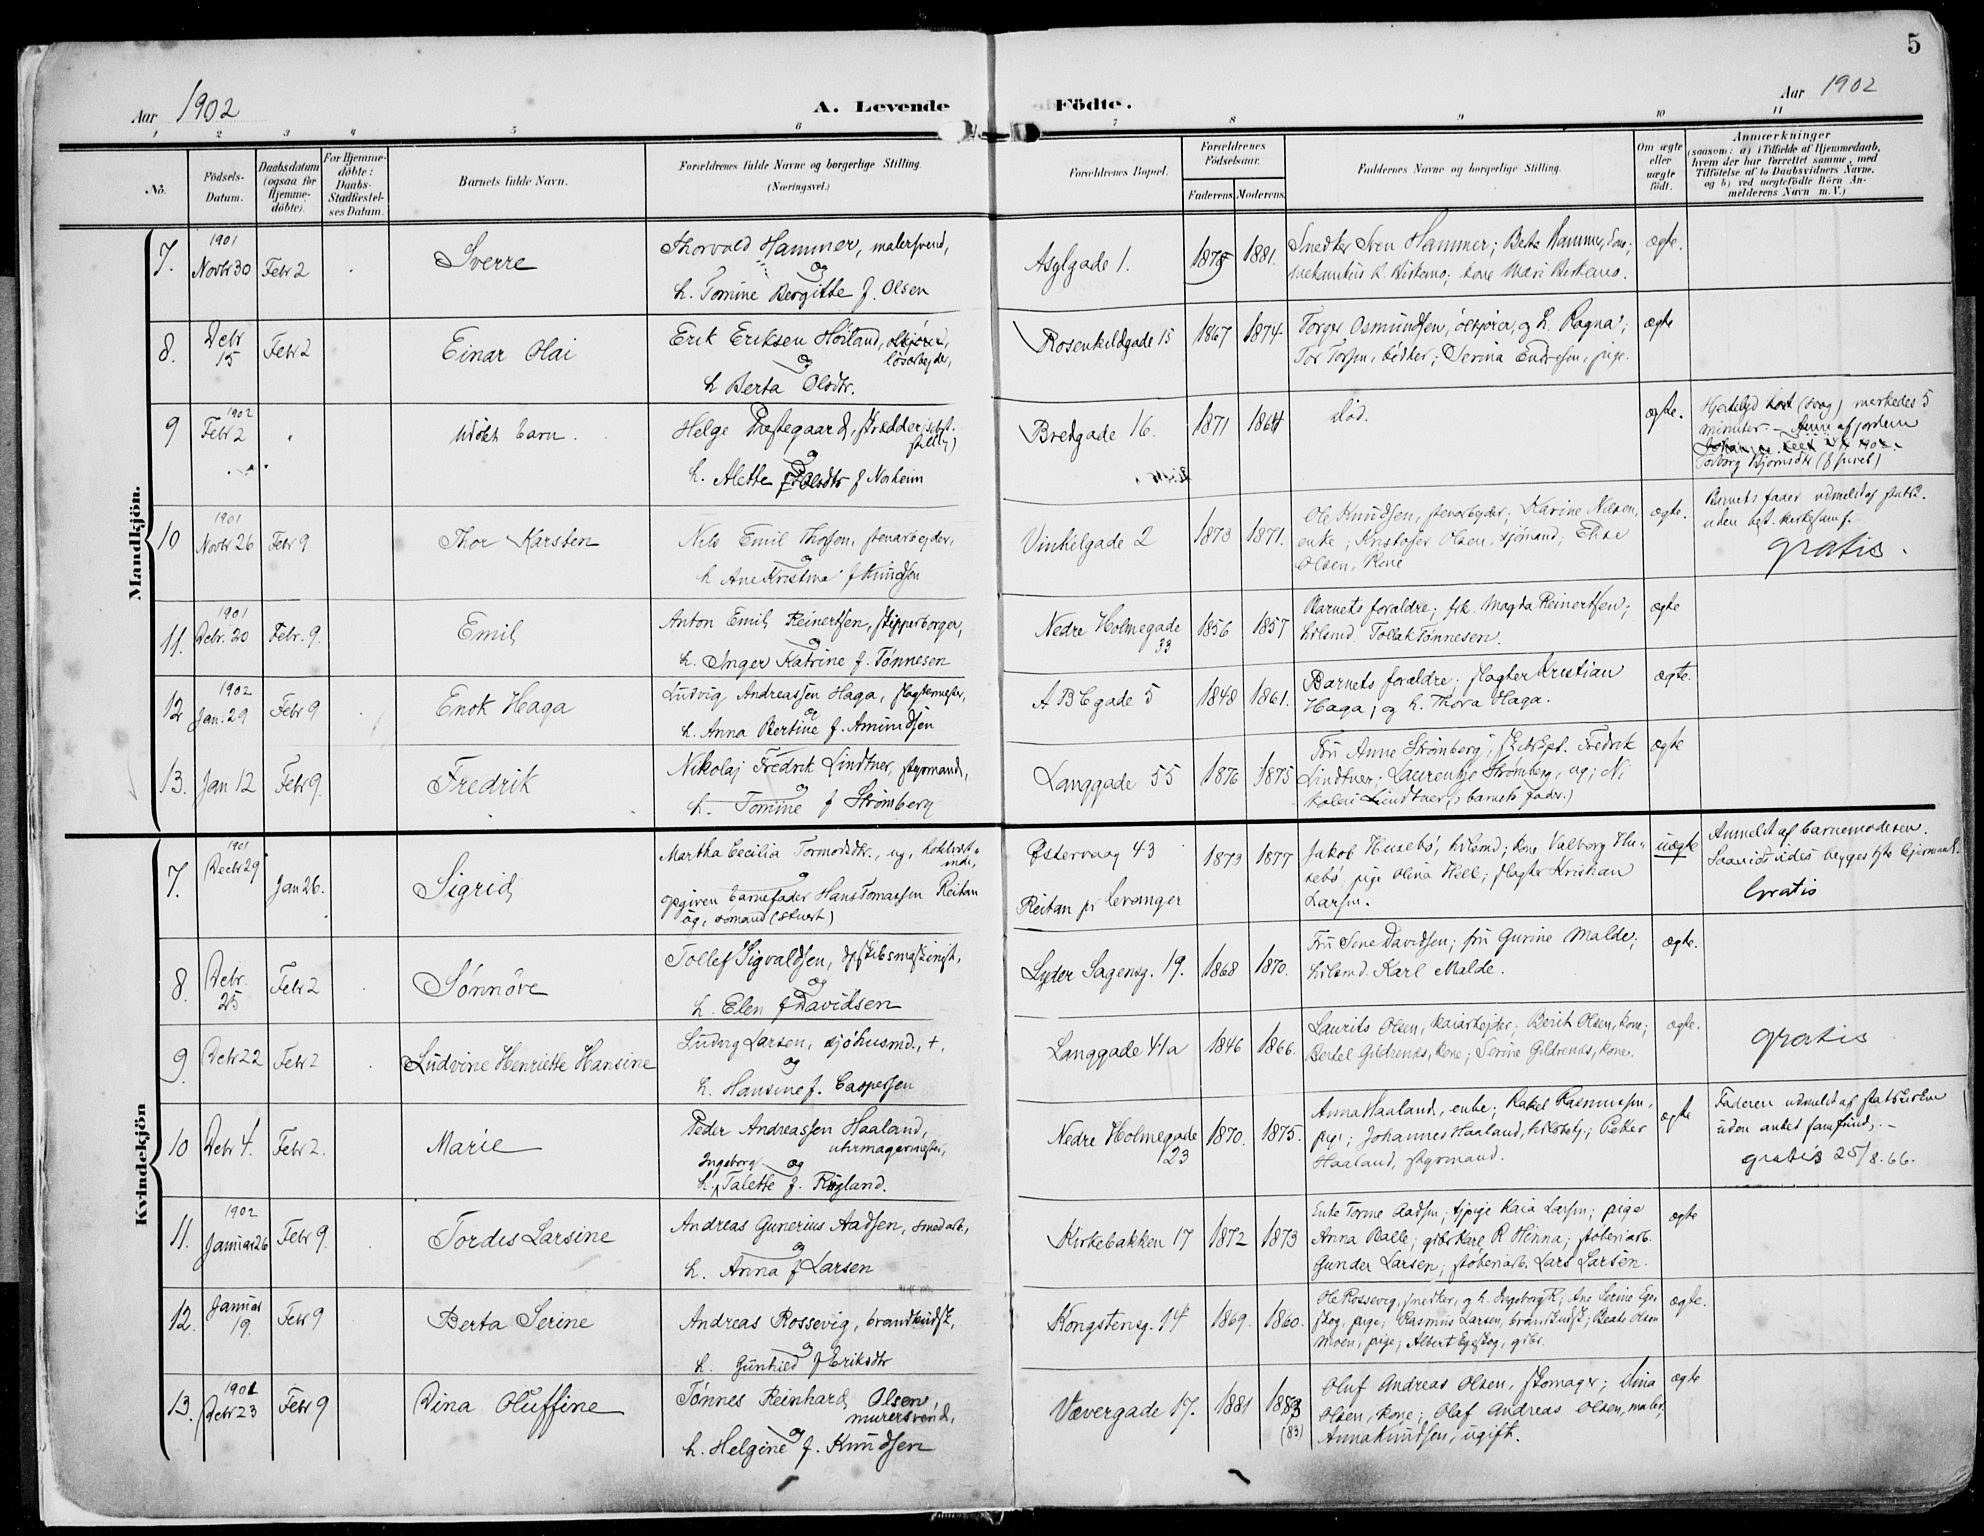 5
Aar 1902
A. Levende Födte.
Aar 1902
1 2 3 4 5 6 7 8 9 10 11
No.
Födsels-Datum.
Daabsdatum (ogsaa for Hjemme-döbte).
For Hjemme-döbte: Daabs-Stadfæstel-ses Datum.
Barnets fulde Navn.
Forældrenes fulde Navne og borgerlige Stilling. (Næringsvei.)
Forældrenes Bopæl.
Forældrenes Födselsaar.
Faderens. Moderens.
Faddernes Navne og borgerlige Stilling.
Om ægte eller uægte födt.
Anmærkninger
(saasom: a) i Tilfælde af Hjemmedaab, hvem der har forrettet samme, med Tilföielse af to Daabsvidners Navne, og b) ved uægtefödte Börn An-melderens Navn m. V.)
Mandkjön.
7. 1901 Novbr 30 Febr 2 Sverre
Thorvald Hammer, malersvend,
og
h. Tomine Bergitte f. Olsen
Asylgade 1. 1875 1881.
Smedker Sven Hammer; Berta Hammer,
ægte.
8. Debr 15 Febr 2 Einar Olai
Erik Eriksen Höiland,
løsarbejder,
og
h Berta Olsdtr.
Rosenkildgade 15 1867 1874
Torger Osmundsen, og h. Ragna;
Tor Torsen, bødker; Serina Endresen, pige.
ægte
9 1902 Febr 2 udöbt barn.
Helge Prestegaard, skrædder
og
h. Alette Olsdtr f Norheim
Bredgade 16. 1871 1864
død.
ægte.
Hjertelyd (svag) merkedes 5
minuter.
Torborg Bjørnsdtr
10 1901 Novbr 26 Febr 9 Thor Karsten
Nils Emil Thorsen, stenarbejder,
og
h Ane Kristina f Knudsen
Vinkelgade 2 1873 1871.
Ole Knudsen, stenarbejder; Karine Nilsen,
enke; Kristofer Olsen, sjömand; Elise
Olsen, kone
ægte.
Barnets fader udmeldt af statsk.
uden best. kirkesamf.
gratis.
11. 1901 Debr. 20 Febr. 9. Emil
Anton Emil Reinertsen, skipperborger,
og
h. Inger Katrine f. Tönnesen
Nedre Holmegade 33 1856 1857
Barnets foraldre; frk. Magda Reinertsen;
Tollak Tønnesen.
ægte
12 1902 Jan. 29 Febr 9 Enok Haga
Ludvig Andreassen Haga, slagtermester,
og
h. Anna Bertine f. Amundsen
A B C gade 5 1848 1861.
Barnets foraldre. slagter Kristian
Haga; og h. Thora Haga.
ægte.
13. Jan 12 Febr 9. Fredrik
Nikolaj Fredrik Lindtner, styrmand,
og
h. Tomine f Strömberg
Langgade 55 1876 1875
Fru Anne Strömberg; Fredrik
Lindtner; Laurentze Strömberg, ug; Ni
kolai Lindtner (barnets fader.)
ægte
Kvindekjön
7. 1901 Decbr 29 Jan 26. Sigrid
Martha Cecilia Tormodsdtr., ug,
og
opgiven barnefader Hans Tomassen Reitan
ug, sömand (stuert)
Östervaag 43
Reitan pr Levanger
1873 1877
Jakob Husebö, kone Valborg Hu-
sebö, pige Olina Helle; slagter Kristian
Larsen.
uægte
Anmeldt af barnemoderen.
Gratis
8. Debr. 25 Febr 2 Sönnöve
Tollef Sigvaldsen, dpskibsmaskinist,
og
h. Elen f Davidsen
Lyder Sagensg. 19. 1868 1870.
Fru Sine Davidsen; fru Gurine Malde;
Karl Malde.
ægte.
9. Debr 22 Febr 2 Ludvine Henriette Hansine
Ludvig Larsen, sjöhusmd., +,
og
h. Hansine f. Caspersen
Langgade 41a 1846 1866.
Laurits Olsen, kaiarbejder; Berit Olsen, kone;
Bertel Gildrenes, kone; Serine Gildrenes, kone.
ægte.
gratis
10 Debr 4. Febr 2. Marie
Peder Andreassen Haaland,
uhrmagermester,
Ingeborg og
h. Talette f. Rygland.
Nedre Holmegade 23 1870. 1875.
Anna Haaland, enke; Rakel Rasmussen,
pige; Johannes Haaland, Peder
Haaland, styrmand.
ægte
Faderen udmeldt af statskirken
uden andet samfund. –
gratis 25/8.66.
11. 1902 Januar 26 Febr 9. Tordis Larsine
Andreas Gunerius Aadsen, smedarb.,
og
h. Anna f Larsen
Kirkebakken 17 1872 1873
Enke Torine Aadsen; tjpige Kaia Larsen; pige
Anna Balle; R Hinna; støberiarb.
Gunder Larsen; støberiarb. Lars Larsen.
ægte
12. Januar 19. Febr 9 Berta Serine
Andreas Rossevig, brandkudsk,
og
h. Gunhild f Eriksdtr
Kongstensg. 14 1869. 1860.
Ole Rossevig, smedker, og h. Ingeborg R; Ane Serine Ege-
skog, pige; Rasmus Larsen, brandkudsk; Beate Olsen
Moen, pige; Albert Egeskog, grbr.
ægte.
13. 1901 Debr 23 Febr 9 Dina Oluffine
Tönnes Reinhard Olsen,
murersvend,
og
h. Helgine f. Knudsen
Vævergade 17. 1881 1883 (83)
Oluf Andreas Olsen, skomager; Dina
Olsen, kone; Olaf Andreas Olsen, maler,
Anna Knudsen, ugift.
ægte